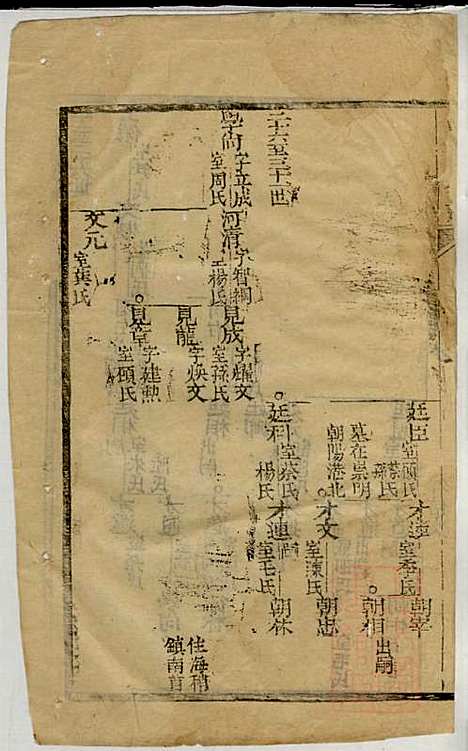 二十六至三十一世
學尚
字立成
室周氏
河清
字智綱
楊氏
見成
字耀文
室孫氏
廷臣
室顧氏
蔡氏
墓在崇明
朝陽港北
才達
室李氏
朝宰
朝相
出嗣
才文
室陳氏
朝忠
廷科
室蔡氏
楊氏
才連
室毛氏
朝休
住海稍
鎮南首
見龍
字煥文
見章
字建勲
室顧氏
文元
室龔氏